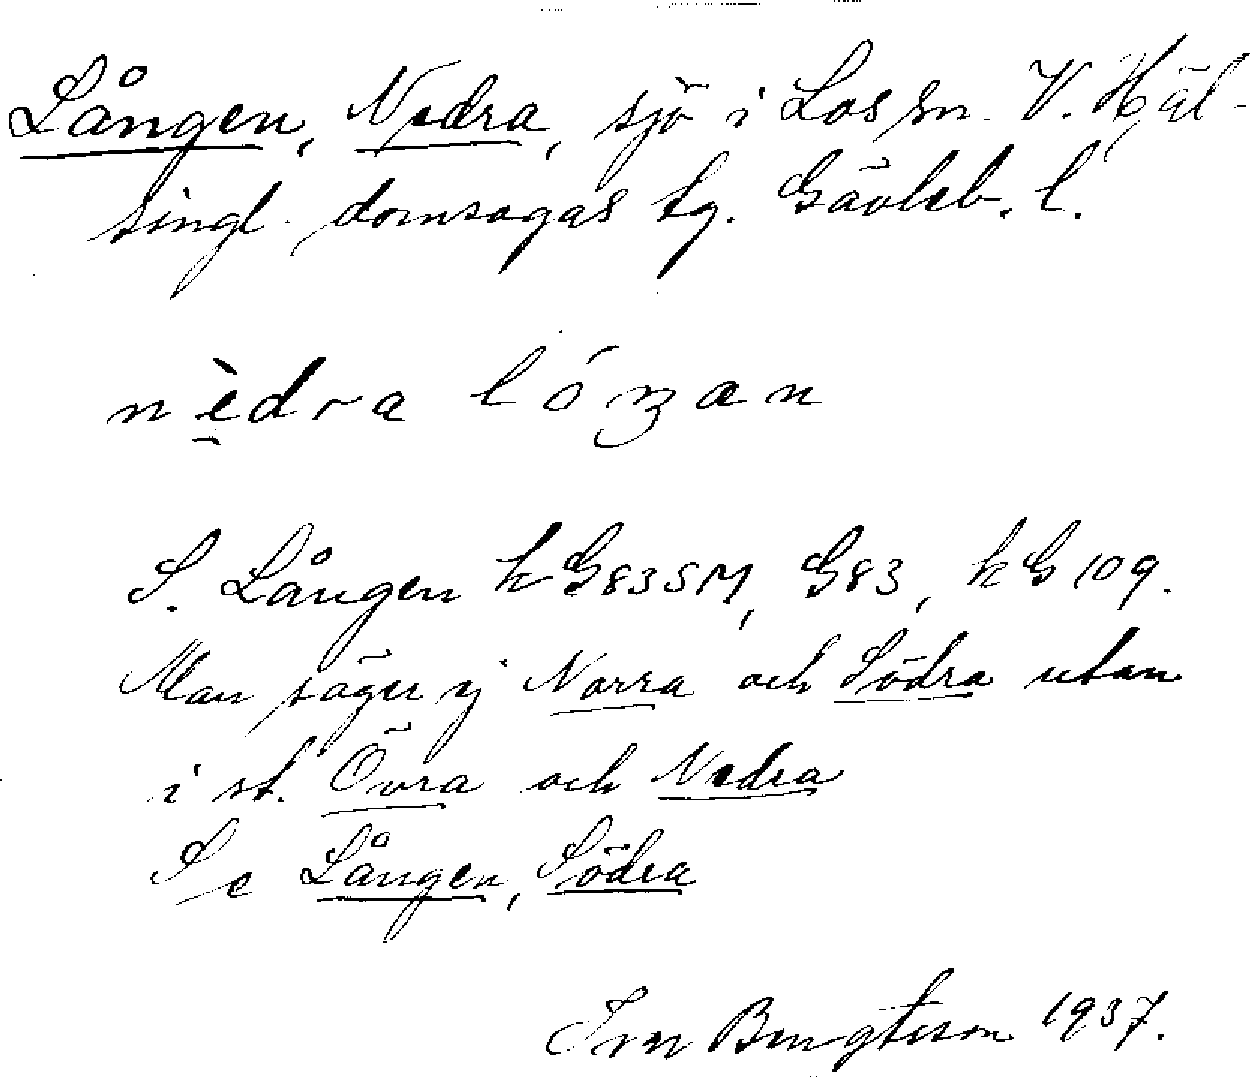 Lången, Nedra, sjö i Los sn. V. Häl-
singl. domsagas tg. Gävleb. l.
nèdra lóŋan
S. Lången kG83SM, G83, kG109.
Man säger ej Norra och Södra utan
i st. Övra och Nedra
Se Lången, Södra
Ivar Bengtsson 1937.